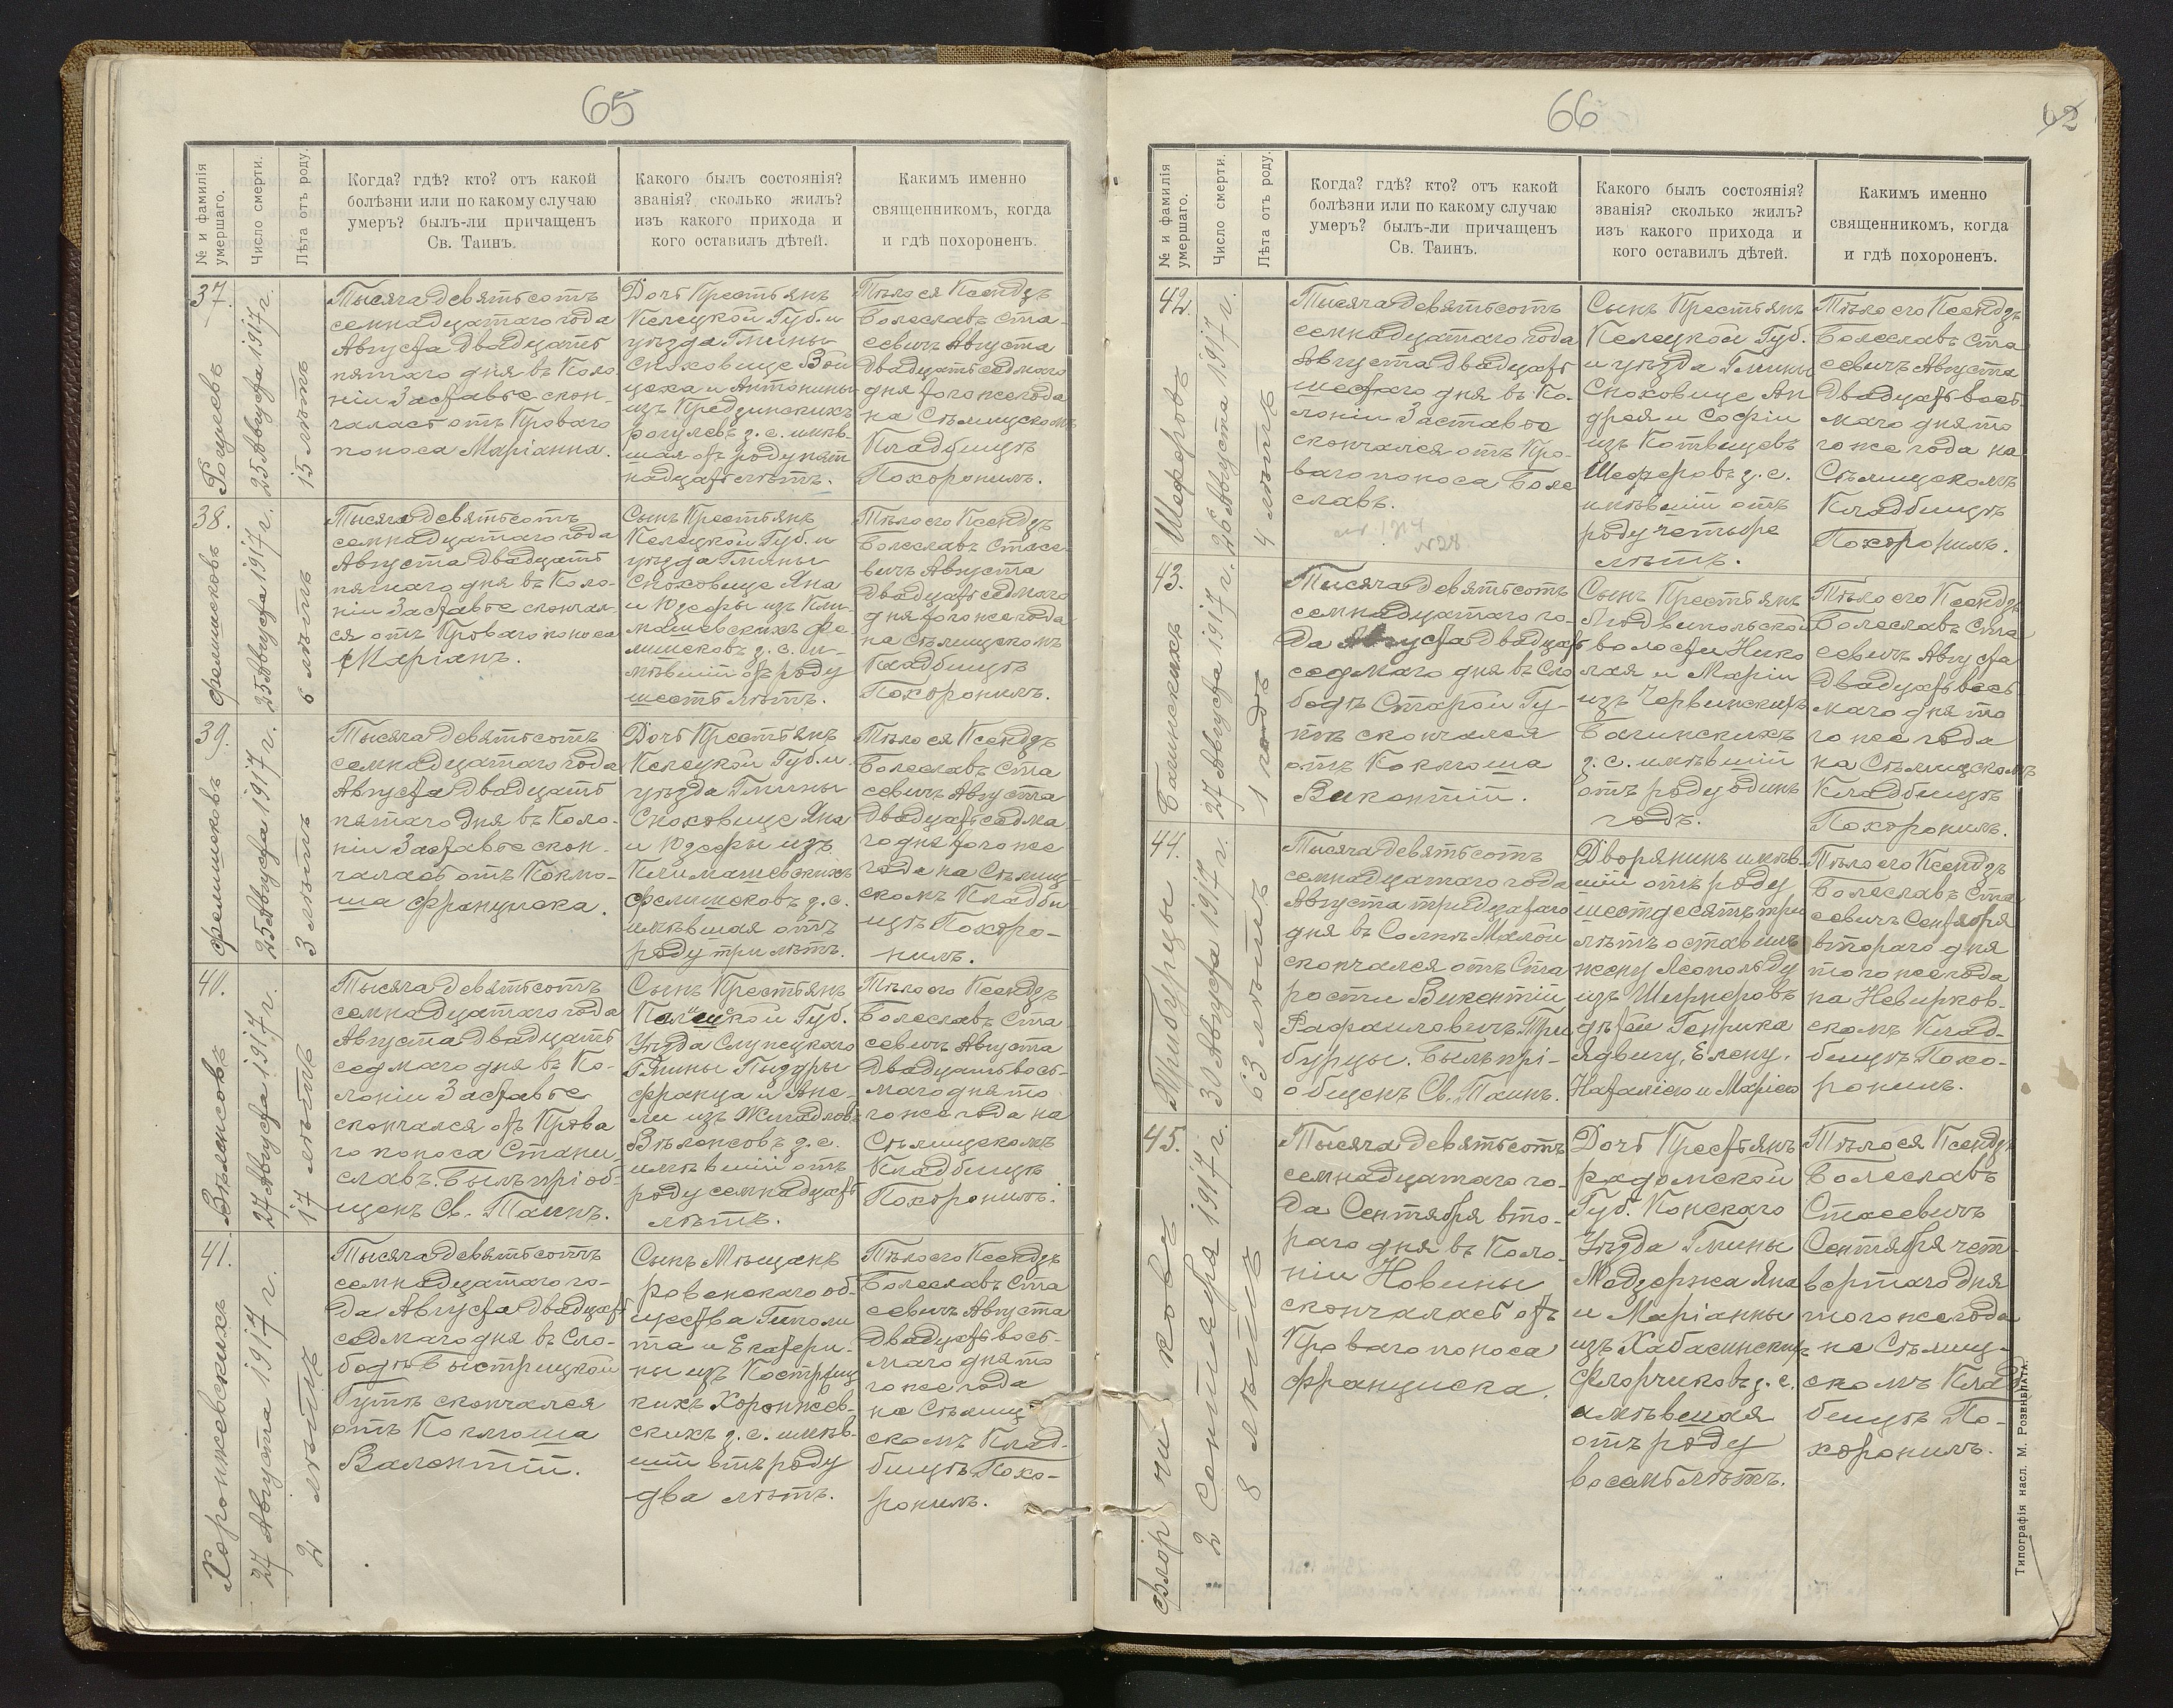 65
№ и фамилія умершаго.
Число смерти.
Лѣта отъ роду.
Когда? гдѣ? кто? отъ какой
болѣзни или по какому случаю
умеръ? былъ-ли причащенъ
Св. Таинъ.
Какого былъ состоянія?
званія? сколько жилъ?
изъ какого прихода и
кого оставилъ дѣтей.
Какимъ именно
священникомъ, когда
и гдѣ похороненъ.
37.
25 Августа 1917 г.
15 лѣтъ
Тысяча девятьсотъ
семнадцатаго года
Августа двадцать
пятаго дня въ Коло
ніи Заставье скон-
чалась отъ Кроваго
поноса Маріанна.
Дочь Крестьянъ
Келецкой Губ. и
уѣзда Гмины
Снохoвице Вой
цеха и Антонины
изъ
з. с. имѣв-
шая отъ роду пят
надцать лѣтъ.
Тѣло ея Ксендзъ
Болеславъ Ста-
севичъ Августа
Двадцать седмаго
дня того же года
на Сѣлищскомъ
Кладбищѣ
Похоронилъ.
38.
Фелишековъ
25 Августа 1917 г.
6 лѣтъ
Тысяча девятьсотъ
семнадцатаго года
Августа двадцать
пятаго дня въ Коло-
ніи Заставье скончал-
ся отъ Кроваго поноса
Маріанъ.
Сынъ Крестьянъ
Келецкой Губ. и
уѣзда Гмины
Снохoвице Яна
и Юзефы изъ Кли-
машевскихъ Фе-
лишековъ з. с. и-
мѣвшій отъ роду
шесть лѣтъ.
Тѣло его Ксендзъ
Болеславъ Стасе-
вичъ Августа
Двадцать седмаго
дня того же года
на Сѣлищскомъ
Кладбищѣ
Похоронилъ.
39.
Фелишековъ
25 Августа 1917 г.
3 лѣтъ
Тысяча девятьсотъ
семнадцатаго года
Августа двадцать
пятаго дня въ Коло-
ніи Заставье скон-
чалась отъ Коклю-
ша Франциска.
Дочь Крестьянъ
Келецкой Губ. и
уѣзда Гмины
Снохoвице Яна
и Юзефы изъ
Климашевскихъ
Фелишековъ з. с.
имѣвшая отъ
роду три лѣтъ.
Тѣло ея Ксендзъ
Болеславъ Ста
севичъ Августа
Двадцать седма
го дня того же
года на Сѣлищ-
скомъ Кладби
щѣ Похоро-
нилъ.
40.
27 Августа 1917 г.
17 лѣтъ
Тысяча девятьсотъ
семнадцатаго года
Августа двадцать
седмаго дня въ Ко-
лоніи Заставье
скончался отъ Крова
го поноса Стани-
славъ. Былъ пріоб-
щенъ Св. Таинъ.
Сынъ Крестьянъ
Губ.
Уѣзда Слупецкаго
Гмины Пыздры
Франца и Анѣ-
ли изъ
з. с.
имѣвшій отъ
роду семнадцать
лѣтъ.
Тѣло его Ксендзъ
Болеславъ Ста-
севичъ Августа
Двадцать вось-
маго дня то
го же года на
Сѣлищскомъ
Кладбищѣ
Похоронилъ.
41.
Хоронжевскихъ
27 Августа 1917 г.
2 лѣтъ
Тысяча девятьсотъ
семнадцатаго го-
да Августа двадцать
седмаго дня въ Сло-
бодѣ Быстрицкой
Гутѣ скончался
отъ Коклюша
Валентій.
Сынъ Мѣщанъ
Ровенскаго об-
щества Гиполи
та и Екатери-
ны изъ
кихъ Хоронжев-
скихъ з. с. имѣв-
шій отъ роду
два лѣтъ.
Тѣло его Ксендзъ
Болеславъ Ста
севичъ Августа
Двадцать вось-
маго дня то
го же года
на Сѣлищ-
скомъ Клад-
бищѣ Похо-
ронилъ.
66
62
№ и фамилія умершаго.
Число смерти.
Лѣта отъ роду.
Когда? гдѣ? кто? отъ какой
болѣзни или по какому случаю
умеръ? былъ-ли причащенъ
Св. Таинъ.
Какого былъ состоянія?
званія? сколько жилъ?
изъ какого прихода и
кого оставилъ дѣтей.
Какимъ именно
священникомъ, когда
и гдѣ похороненъ.
42.
Шеферовъ
26 Августа 1917 г.
4 лѣтъ
Тысяча девятьсотъ
семнадцатаго года
Августа двадцать
шестаго дня въ Ко-
лоніи Заставье
скончался отъ Кро-
ваго поноса Боле
славъ.
№28
Сынъ Крестьянъ
Келецкой Губ.
и уѣзда Гмины
Снохoвице Ан
дрея и Софіи
изъ
Шеферовъ з. с.
имѣвшій отъ
роду четыре
лѣтъ.
Тѣло его Ксендзъ
Болеславъ Ста
севичъ Августа
Двадцать вось-
маго дня то
го же года на
Сѣлищскомъ
Кладбищѣ
Похоронилъ.
43.
Багинскихъ
27 Августа 1917 г.
1 годъ
Тысяча девятьсотъ
семнадцатаго го-
да Августа двадцать
седмаго дня въ Сло
бодѣ Старой Гу-
тѣ скончался
отъ Коклюша
Викентій.
Сынъ Крестьянъ
Людвипольской
волости Нико
лая и Маріи
изъ Червинскихъ
Багинскихъ
з. с. имѣвшій
отъ роду одинъ
годъ.
Тѣло его Ксендзъ
Болеславъ Ста
севичъ Августа
Двадцать вось
маго дня то
го же года
на Сѣлищскомъ
Кладбищѣ
Похоронилъ.
44.
Трибурцы
31 Августа 1917 г.
63 лѣтъ
Тысяча девятьсотъ
семнадцатаго года
Августа тридцатаго
дня въ Солпѣ Малой
скончался отъ Ста
рости Викентій
Рафаиловичъ Три
бурцы. Былъ прі-
общенъ Св. Таинъ.
Дворянинъ имѣв-
шій отъ роду
шестдесятъ три
лѣтъ оставилъ
жену Леопольду
изъ
дѣтей Генрика
Ядвигу, Елену,
Наталію и Марію
Тѣло его Ксендзъ
Болеславъ Ста
севичъ Сентября
втораго дня
того же года
на Невирков-
скомъ Клад-
бищѣ Похо-
ронилъ.
45.
Флорчиковъ
2 Сентября 1917 г.
8 лѣтъ
Тысяча девятьсотъ
семнадцатаго го-
да Сентября вто-
раго дня въ Коло-
ніи Новины
скончалась отъ
Кроваго поноса
Франциска.
Дочь Крестьянъ
Радомской
Губ. Конскаго
Уѣзда Гмины
Яна
и Маріанны
изъ
Флорчиковъ з. с.
имѣвшая
отъ роду
восемь лѣтъ.
Тѣло ея Ксендзъ
Болеславъ
Стасевичъ
Сентября чет-
вертаго дня
того же года
на Сѣлищ-
скомъ Клад
бищѣ По-
хоронилъ.
Типографія насл. М. Розенблата.